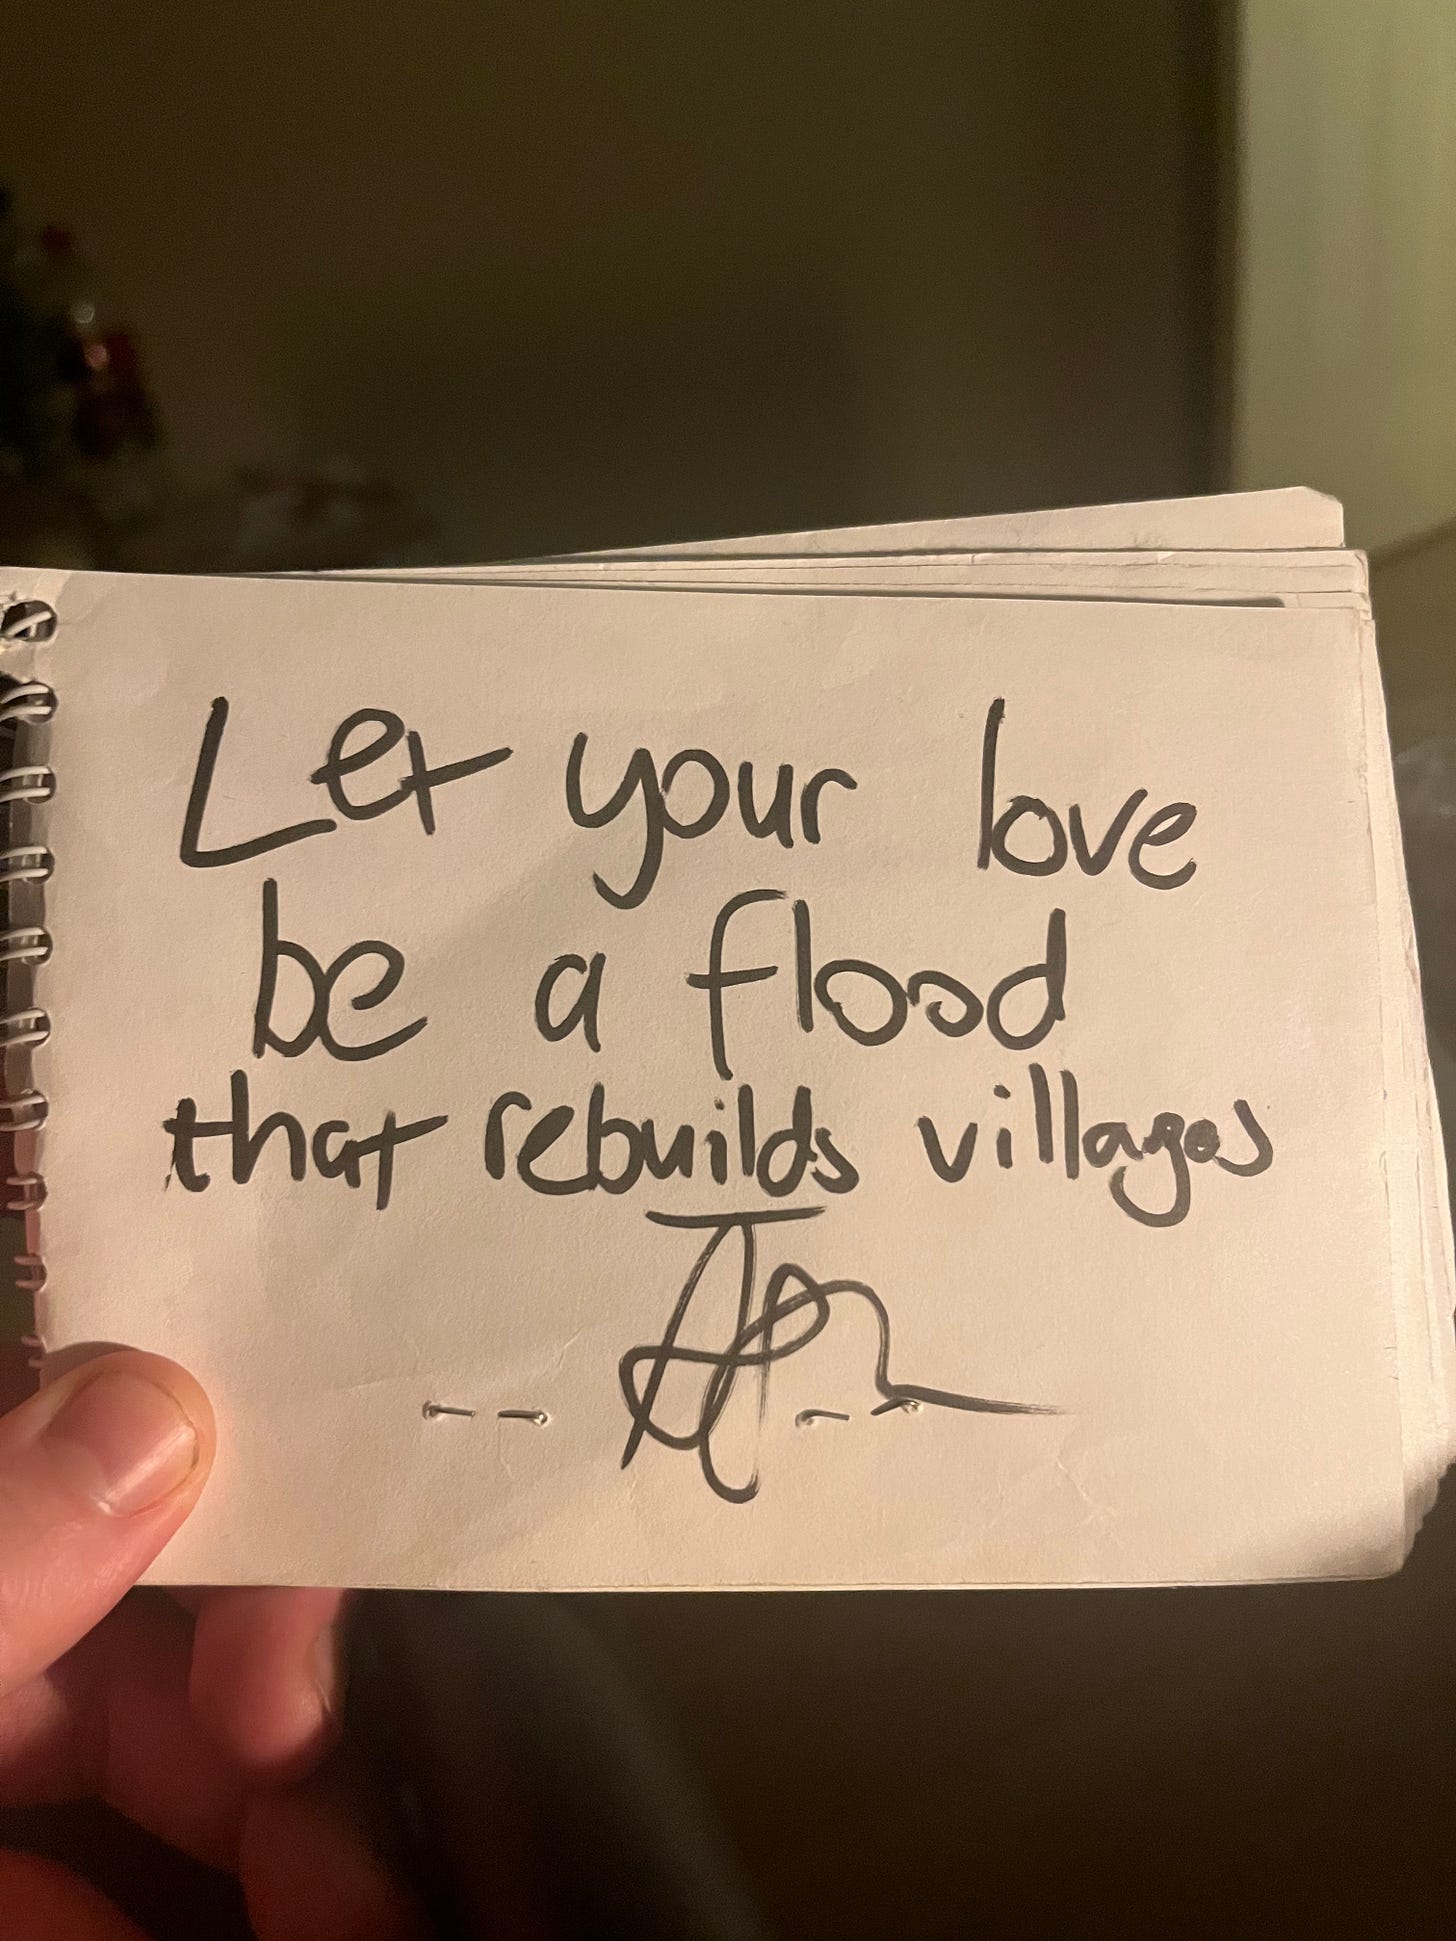 Let your love
be a flood
that rebuilds villages